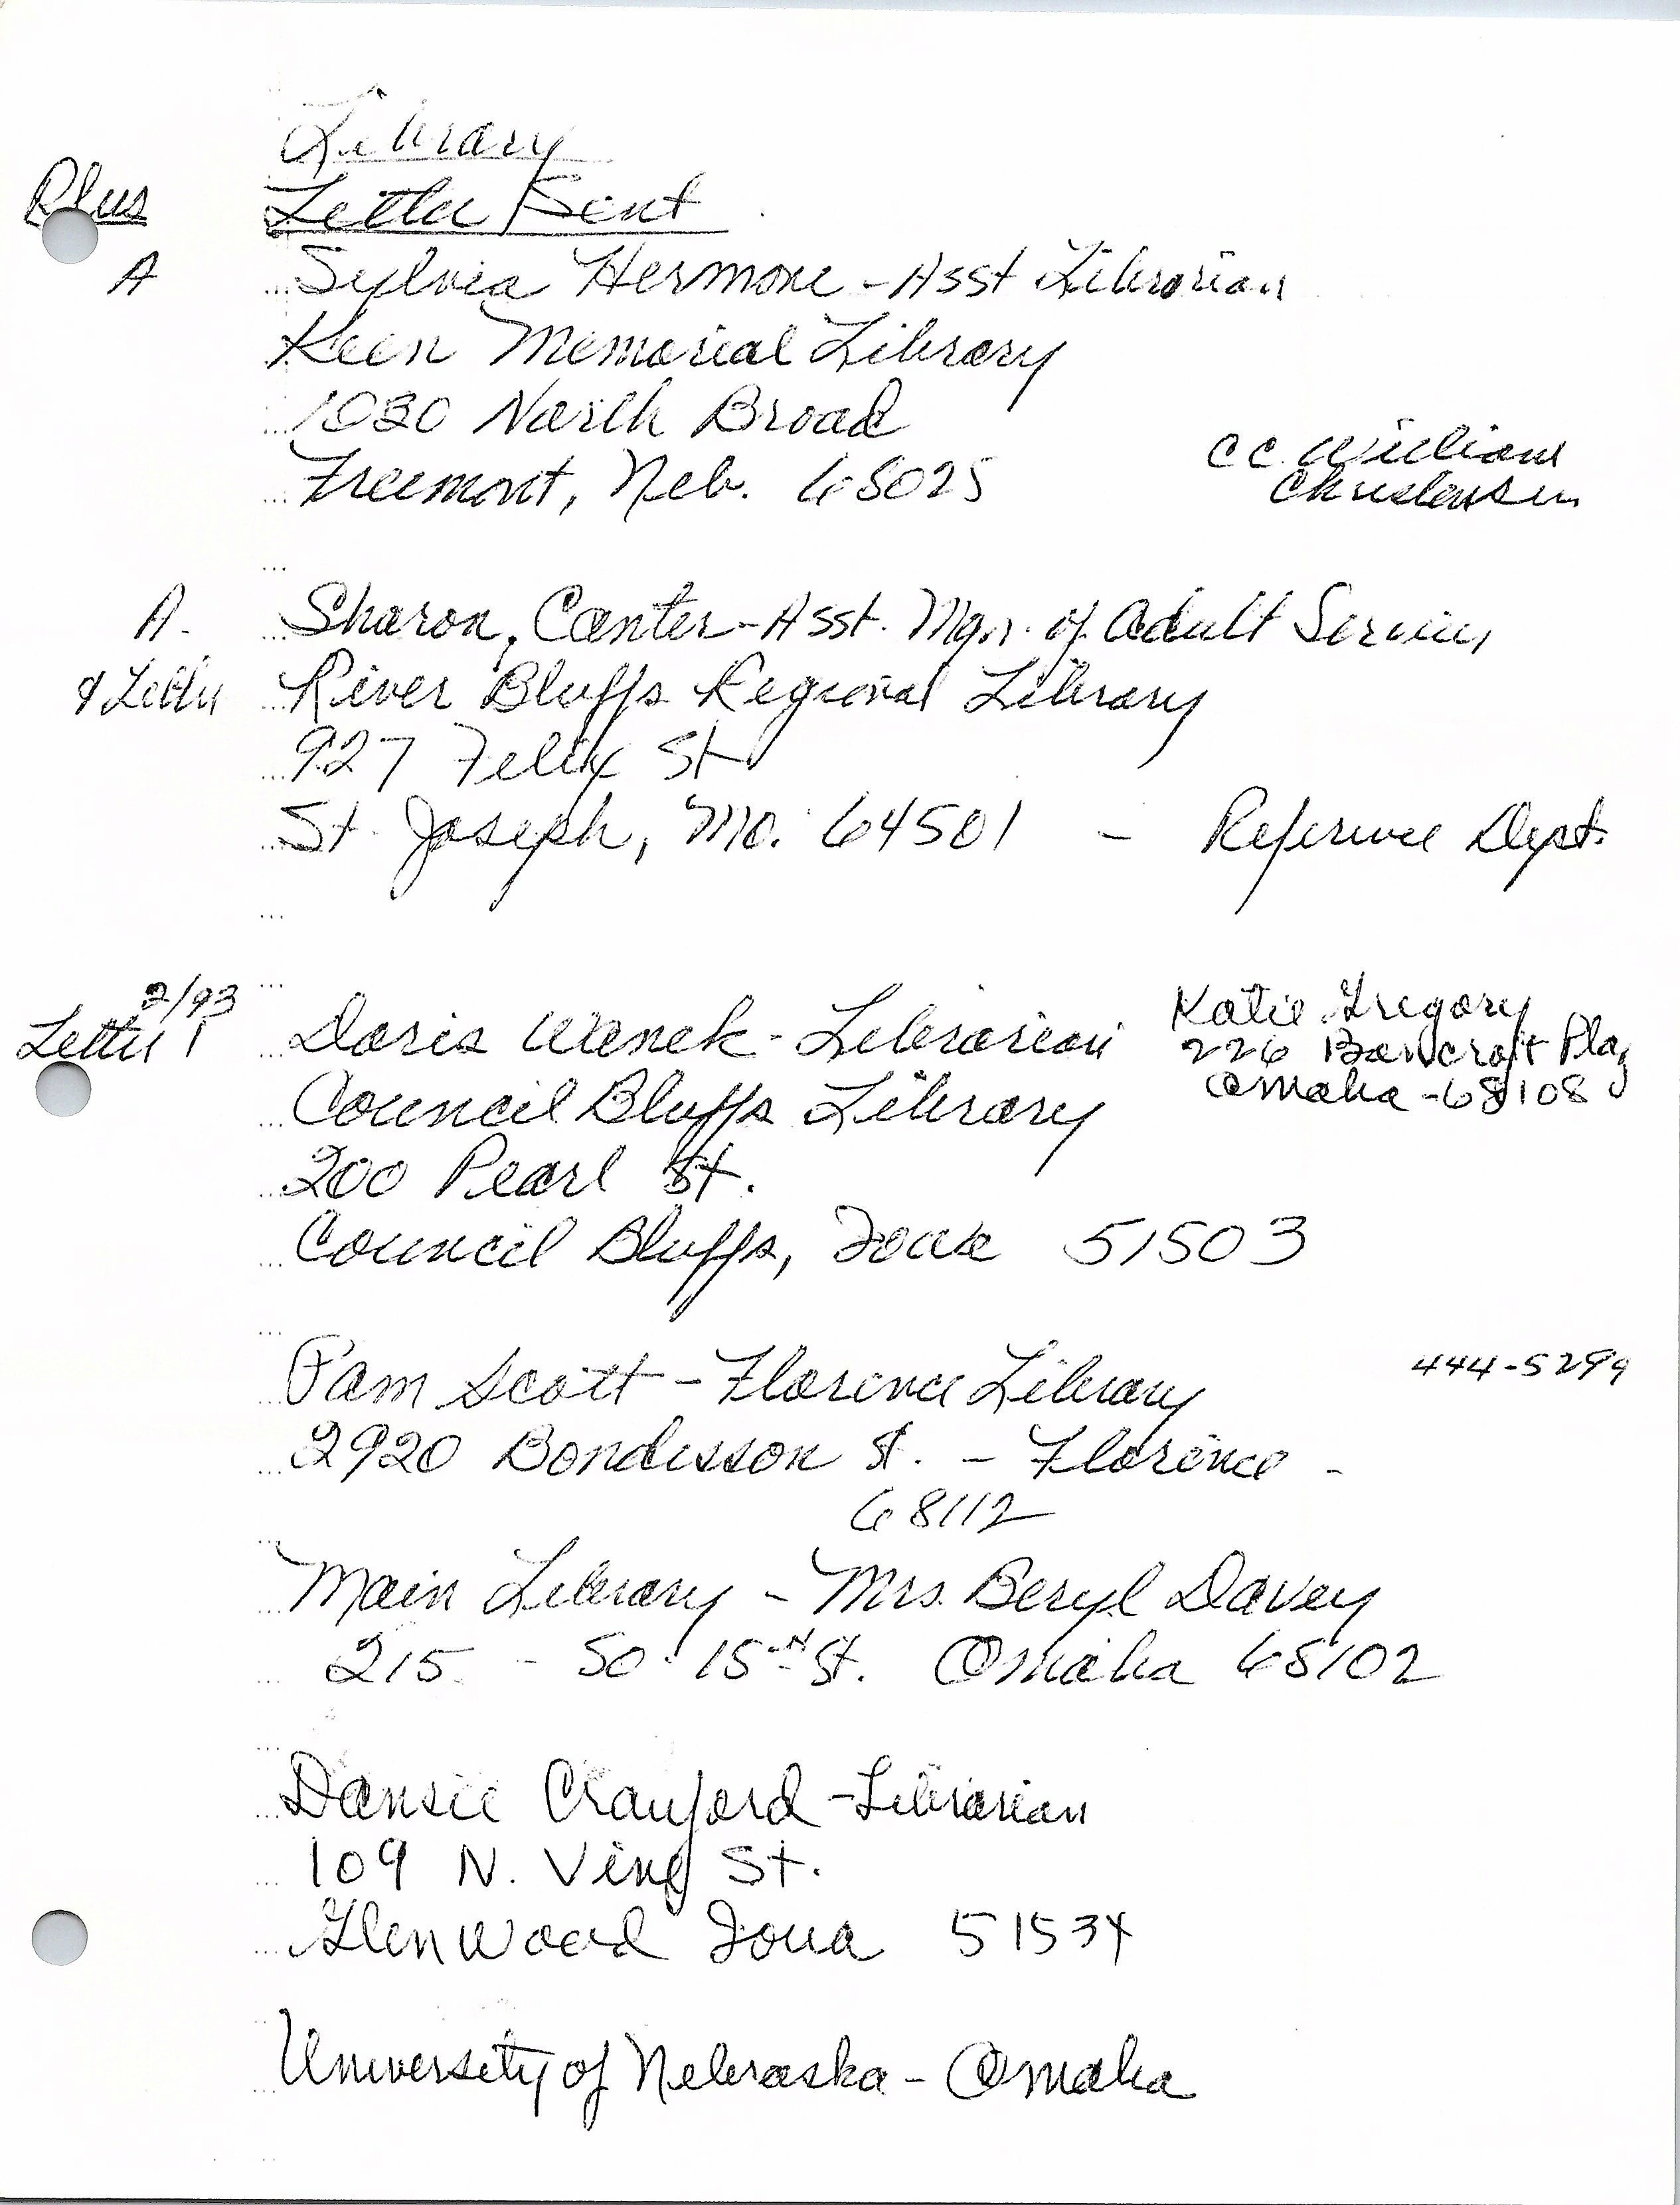 Library
Plus Letter Sent
A Sylvia Hermone - Asst Librarian
Keen Memorial Library
1030 North Broad
Freemont, Neb. 68025
CC. William
Christensen
A. Sharon, Canter - Asst. Mgr. of Adult Services
& Letter River Bluffs Regional Library
927 Felix St
St. Joseph, Mo. 64501 - Reference Dept.
2/93
Letter 1 Doris Wanek - Librarian
Council Bluffs Library
200 Pearl St.
Council Bluffs, Iowa 51503
Katie Gregory
226 Bancroft Plaz
Omaha - 68108
Pam Scott - Florence Library 444-5299
2920 Bondesson St. - Florence -
68112
Main Library - Mrs. Beryl Davey
215 - So. 15th St. Omaha 68102
Dansie Crawford - Librarian
109 N. Vine St.
Glenwood Iowa 51534
University of Nebraska - Omaha